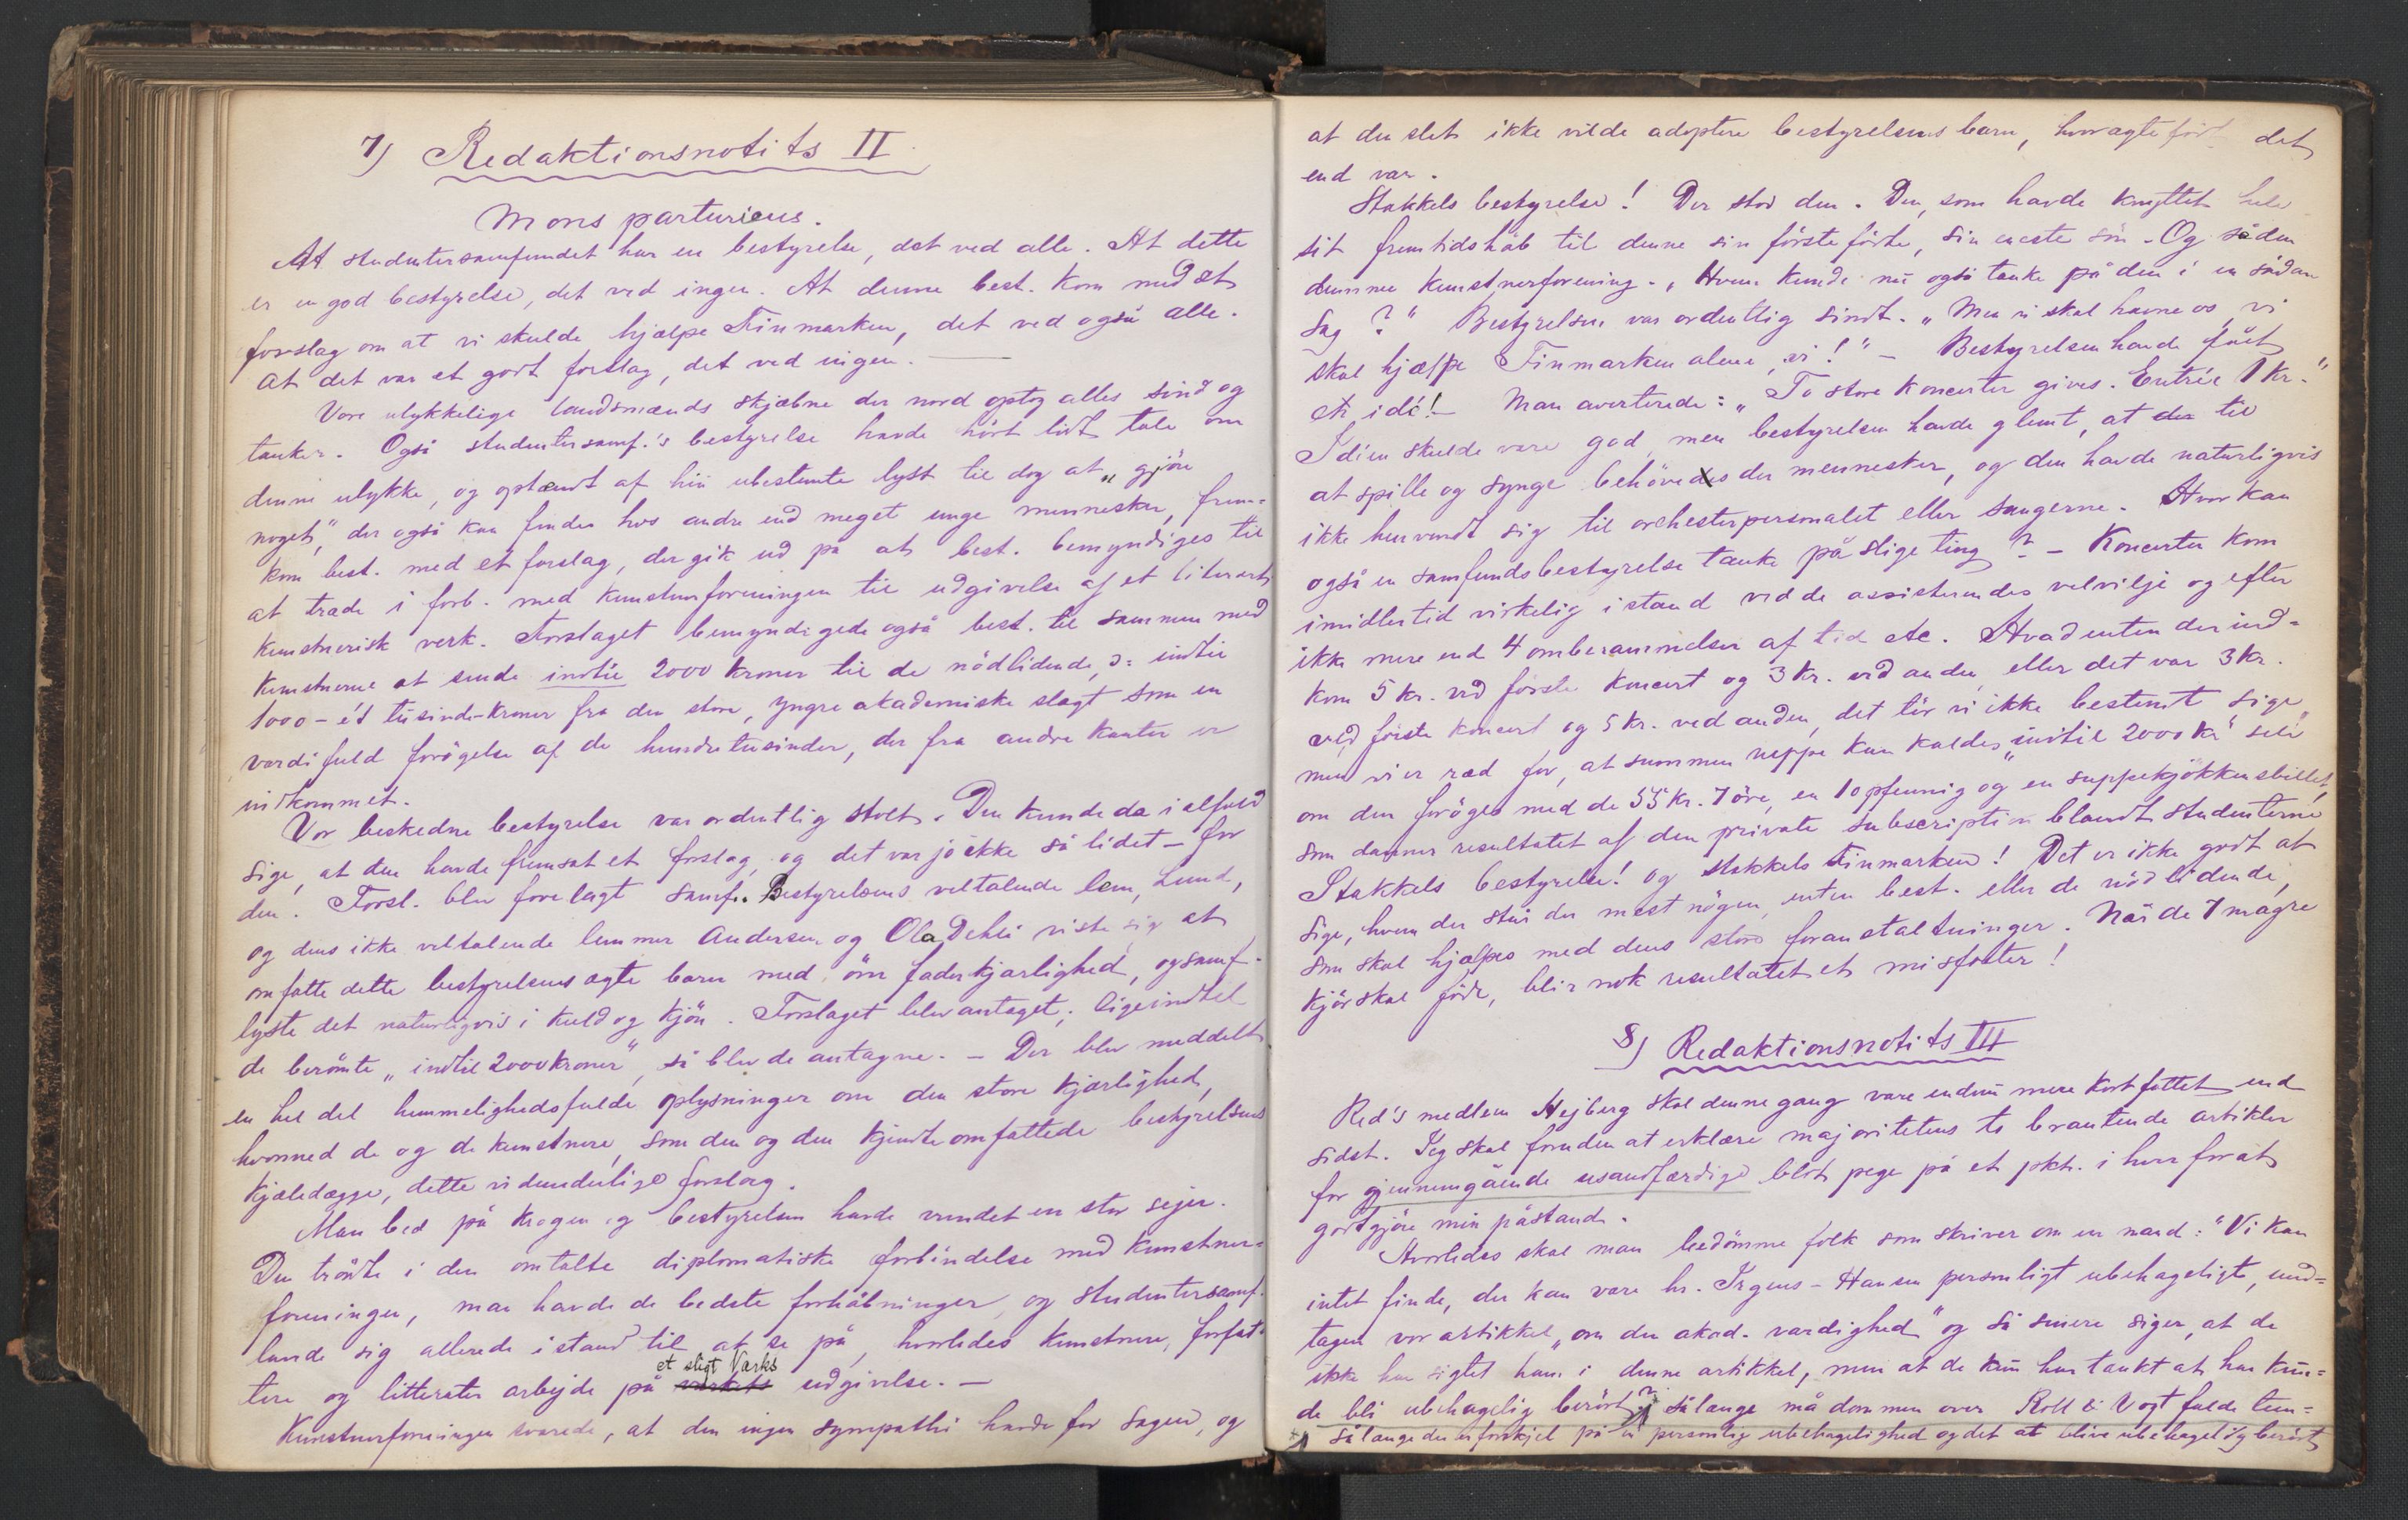 7) Redaktionsnotits II
Mons parturiens.
At studentersamfundet har en bestyrelse, det ved alle. At dette
er en god bestyrelse, det ved ingen. At denne best. kom med et
forslag om at vi skulde hjælpe Finmarken, det ved også alle.
At det var et godt forslag, det ved ingen. —
Vore ulykkelige landsmænds skjæbne der nord optog alles sind og
tanker. Også studentersamf.'s bestyrelse havde hört lidt tale om
denne ulykke, og optændt af hin ubestemte lyst til dog at „gjöre
noget", der også kan findes hos andre end meget unge mennesker, frem=
kom best. med et forslag, der gik ud på at best. bemyndiges til
at træde i forb. med kunstnerforeningen til udgivelse af et literært
kunstnerisk verk. Forslaget bemyndigede også best. til sammen med
kunstnerne at sende indtil 2000 kroner til de nödlidende, ɔ: indtil
1000 - ét tusinde-kroner fra den store, yngre akademiske slægt som en
værdifuld forögelse af de hundretusinder, der fra andre kanter er
indkommet.
Vor beskedne bestyrelse var ordentlig stolt. Den kunde da i alfald
sige, at den havde fremsat et forslag, og det var jo ikke så lidet - for
den. Forsl. blev forelagt samf. Bestyrelsens veltalende lem, Lund,
og dens ikke veltalende lemmer Andersen og Ola Dehli viste sig at
omfatte dette bestyrelsens ægte barn med öm faderkjærlighed, og samf.
lyste det naturligvis i kuld og kjön. Forslaget blev antaget; lige indtil
de berömte „indtil 2000 kroner", så blev de antagne. - Der blev meddelt
en hel del hemmelighedsfulde oplysninger om den store kjærlighed,
hvormed de og de kunstnere, som den og den kjendte omfattede bestyrelsens
kjæledægge, dette vidunderlige forslag.
Man bed på krogen og bestyrelsen havde vundet en stor sejer.
Den trådte i den omtalte diplomatiske forbindelse med kunstner=
foreningen, man havde de bedste forhåbninger og studentersamf.
lavede sig allerede istand til at se på, hvorledes kunstnere, forfat=
tere og litterater arbejde på et sligt Værks udgivelse. —
Kunstnerforeningen svarede, at den ingen sympathi havde for sagen, og
at den slet ikke vilde adoptere bestyrelsens barn, hvor ægte födt det
end var.
Stakkels bestyrelse! Der stod den. Den, som havde knyttet hele
sit fremtidshåb til denne sin förste födte, sin eneste sön. Og så den
dumme kunstnerforening. „Hvem kunde nu også tænke på den i en sådan
sag?" Bestyrelsen var ordentlig sindt. „Men vi skal hævne os, vi
skal hjælpe Finmarken alene, vi!" - Bestyrelsen havde fået
en idé! - Man averterede: „To store koncerter gives. Entrée 1 kr."
Idéen skulde være god, men bestyrelsen havde glemt, at der til
at spille og synge behövedes der mennesker, og den havde naturligvis
ikke henvendt sig til orchesterpersonalet eller sangerne. Hvor kan
også en samfundsbestyrelse tænke på slige ting? - Koncerter kom
imidlertid virkelig istand ved de assisterendes velvilje og efter
ikke mere end 4 omberammelser af tid etc. Hvadenten der ind=
kom 5 kr. ved förste koncert og 3 kr. ved anden, eller det var 3 kr.
ved förste koncert og 5 kr. ved anden, det tör vi ikke bestemt sige,
men vi er ræd for, at summen neppe kan kaldes „indtil 2000 kr." selv
om den foröges med de 55 kr. 7 öre, en 10 pfennig og en suppekjökkensbillet,
som danner resultatet af den private subscription blandt studenterne
Stakkels bestyrelse! og stakkels Finmarken! Det er ikke godt at
sige, hvem der står der mest nögen, enten best. eller de nödlidende,
som skal hjælpes med dens store foranstaltninger. Når de 7 magre
kjör skal föde, blir nok resultatet et misfoster!
8) Redaktionsnotits III
Red's medlem Hejberg skal denne gang være endnu mere kortfattet end
sidst. Jeg skal foruden at erklære majoritetens to brautende artikler
for gjennemgående usandfærdige blot pege på et pkt. i hver for at
godtgjöre min påstand.
Hvorledes skal man bedömme folk som skriver om en mand: "Vi kan
intet finde, der kan være hr. Irgens-Hansen personligt ubehageligt, und=
tagen vor artikkel „om den akad. værdighed" og så senere siger, at de
ikke har sigtet ham i denne artikkel, men at de kun har tænkt at han kun=
de bli ubehagelig berört? Sålænge må dommen over Roll & Vogt falde tem=
Sålænge der er forskjel på en personlig ubehagelighed og det at blive ubehagelig berört